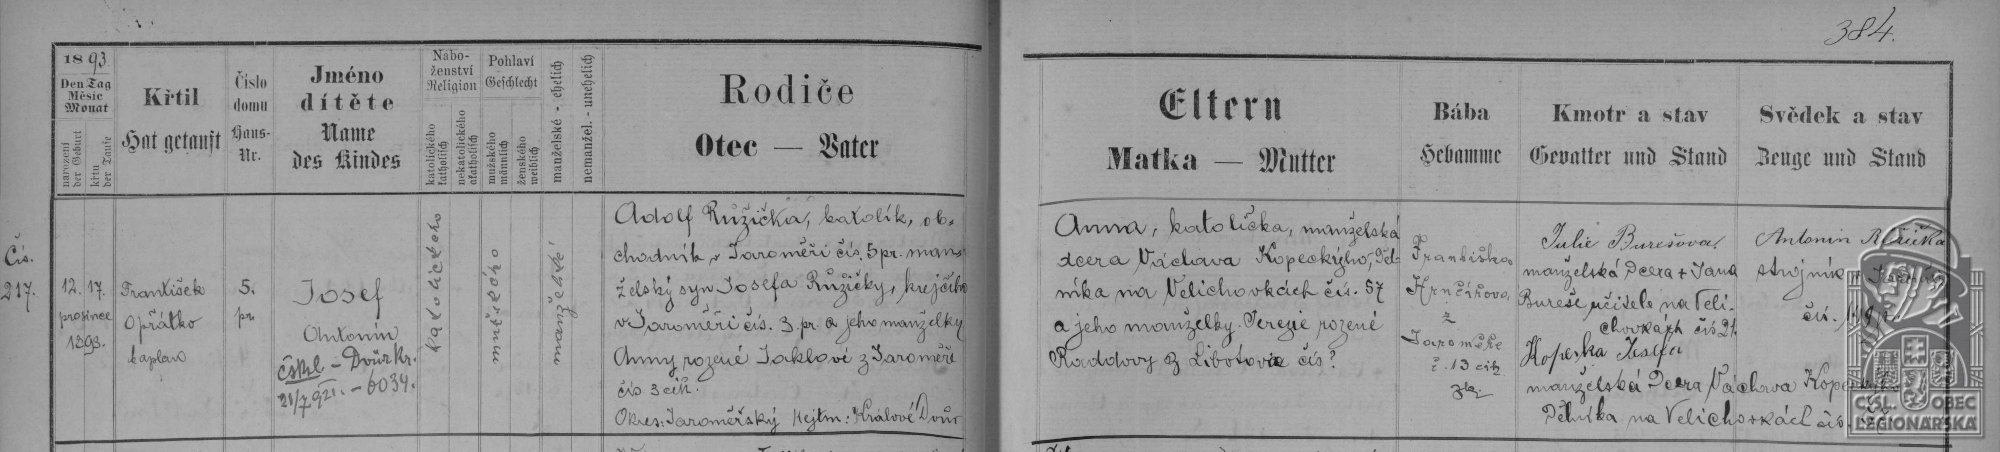 384.
1893
Den Tag
Měsíc
Monat
narození
der Geburt
křtu
der Taufe
Křtil
Hat getauft
Číslo
domu
Haus-
Nr.
Jméno
dítěte
Name
des Kindes
Nábo-
ženství
Religion
katolického
katholisch
nekatolického
akatholisch
Pohlaví
Geschlecht
mužského
männlich
ženského
weiblich
manželské - ehelich
nemanžel. - unehelich
Rodiče
Otec — Vater
Eltern
Matka — Mutter
Bába
Hebamme
Kmotr a stav
Gevatter und Stand
Svědek a stav
Zeuge und Stand
Čís.
217.
12. 17.
prosince
1893.
František
Opřátko
kaplan
5.
pr
Josef
Antonín
čsl. - Dvůr Kr.
21/7 921. - 6034.
katolického
mužského
manželské
Adolf Růžička, katolík, ob-
chodník v Jaroměři čís. 5 pr. man-
želský syn Josefa Růžičky, krejčího
v Jaroměři čís. 3 pr. a jeho manželky
Anny rozené Jaklové z Jaroměře
čís 3 cih.
Okres: Jaroměřský Hejtm: Králové Dvůr
Anna, katolička, manželská
dcera Václava Kopeckýho, děl-
níka na Velichovkách čís. 57
a jeho manželky Terezie rozené
Raddovy z Libotova čís?
Františka
Hrnčířova
z
Jaroměře
č. 13 cih
Julie Burešova,
manželská dcera + Jana
Bureše učitele na Veli
chovkách čís 21.
Kopecka Josefa
manželská dcera Václava Kopeckýho
Dělníka na Velichovkách čís. 57
Antonín Růžička
strojník
čís.
ČSL. OBEC
LEGIONÁŘSKÁ